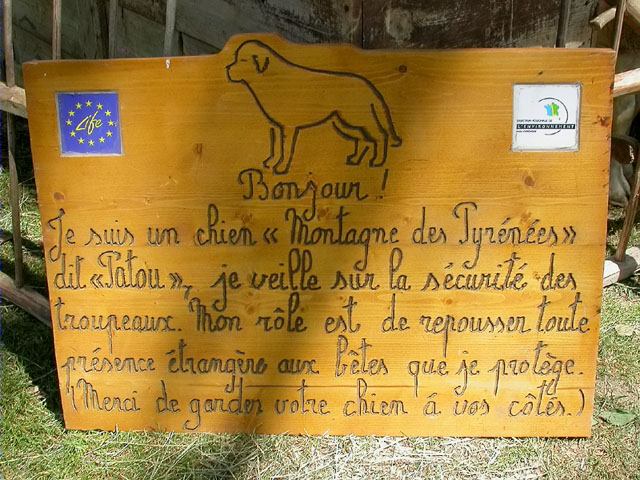 Life
L'ENVIRONNEMENT
Bonjour !
Je suis un chien « Montagne des Pyrénées »
dit « Patou », je veille sur la sécurité des
troupeaux. Mon rôle est de repousser toute
présence étrangère aux bêtes que je protège.
(Merci de garder votre chien á vos côtés.)